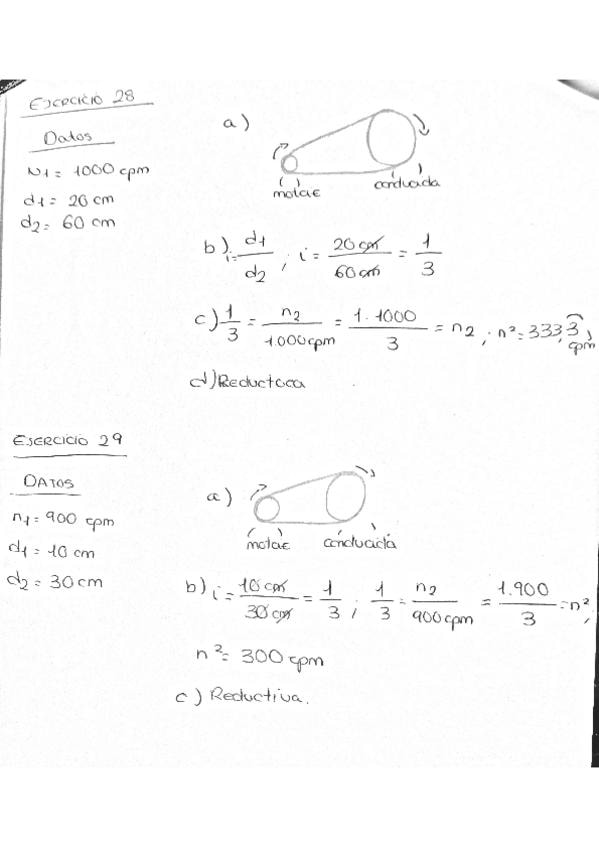 EJERCICIO 28
Datos
N1 = 1000 cpm
d1 = 20 cm
d2 = 60 cm
a)
motriz
conducida
b) i = d1/d2 ; i = 20 cm/60 cm = 1/3
c) 1/3 = n2/1.000 cpm = 1·1000/3 = n2 ; n² = 333,3 cpm
d) Reductora
EJERCICIO 29
DATOS
n1 = 900 cpm
d1 = 10 cm
d2 = 30 cm
a)
motriz
conducida
b) i = 10 cm/30 cm = 1/3 ; 1/3 = n2/900 cpm = 1.900/3 = n²;
n² = 300 cpm
c) Reductiva.